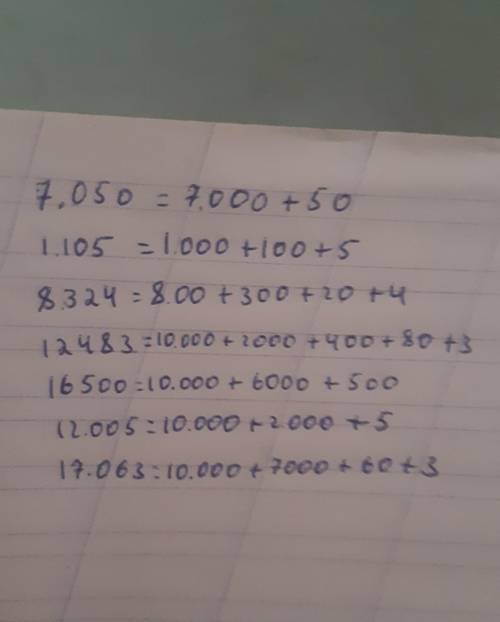 7.050 = 7.000 + 50
1.105 = 1.000 + 100 + 5
8.324 = 8.00 + 300 + 20 + 4
12483 = 10.000 + 2000 + 400 + 80 + 3
16500 = 10.000 + 6000 + 500
12.005 = 10.000 + 2.000 + 5
17.063 = 10.000 + 7000 + 60 + 3